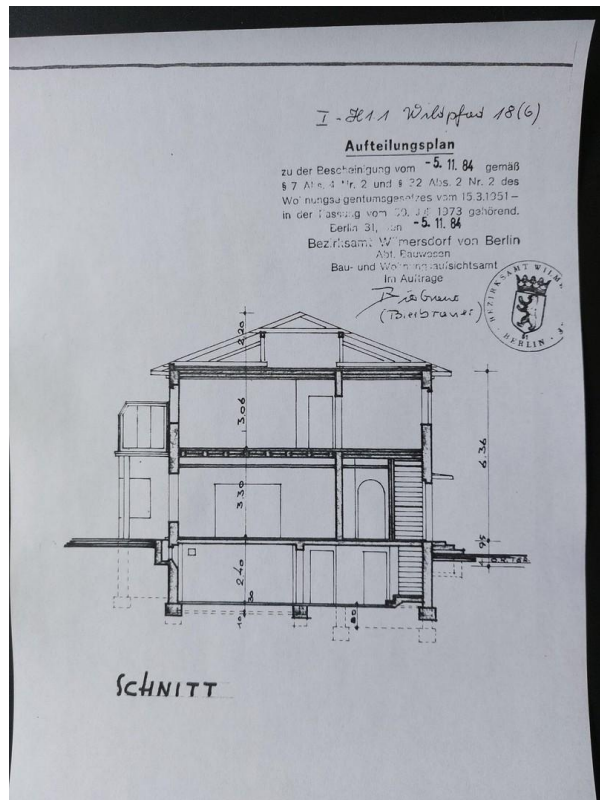 I - H11 Wildpfad 18(6)
Aufteilungsplan
zu der Bescheinigung vom -5. 11. 84 gemäß
§ 7 Abs. 4 Nr. 2 und § 32 Abs. 2 Nr. 2 des
Wohnungseigentumsgesetzes vom 15.3.1951 –
in der Fassung vom 30. Juli 1973 gehörend.
Berlin 31, den -5. 11. 84
Bezirksamt Wilmersdorf von Berlin
Abt. Bauwesen
Bau- und Wohnungsaufsichtsamt
Im Auftrage
BEZIRKSAMT WILM
BERLIN
2,20
3.06
6.36
3.30
95
2.40
30
80
SCHNITT